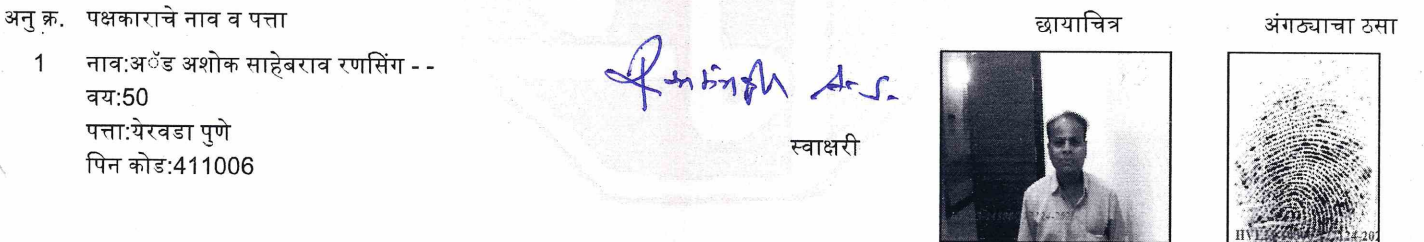 अनु क्र. पक्षकाराचे नाव व पत्ता छायाचित्र अंगठ्याचा ठसा
1 नाव:अॅड अशोक साहेबराव रणसिंग - -
वय:50
पत्ता:येरवडा पुणे
पिन कोड:411006
स्वाक्षरी